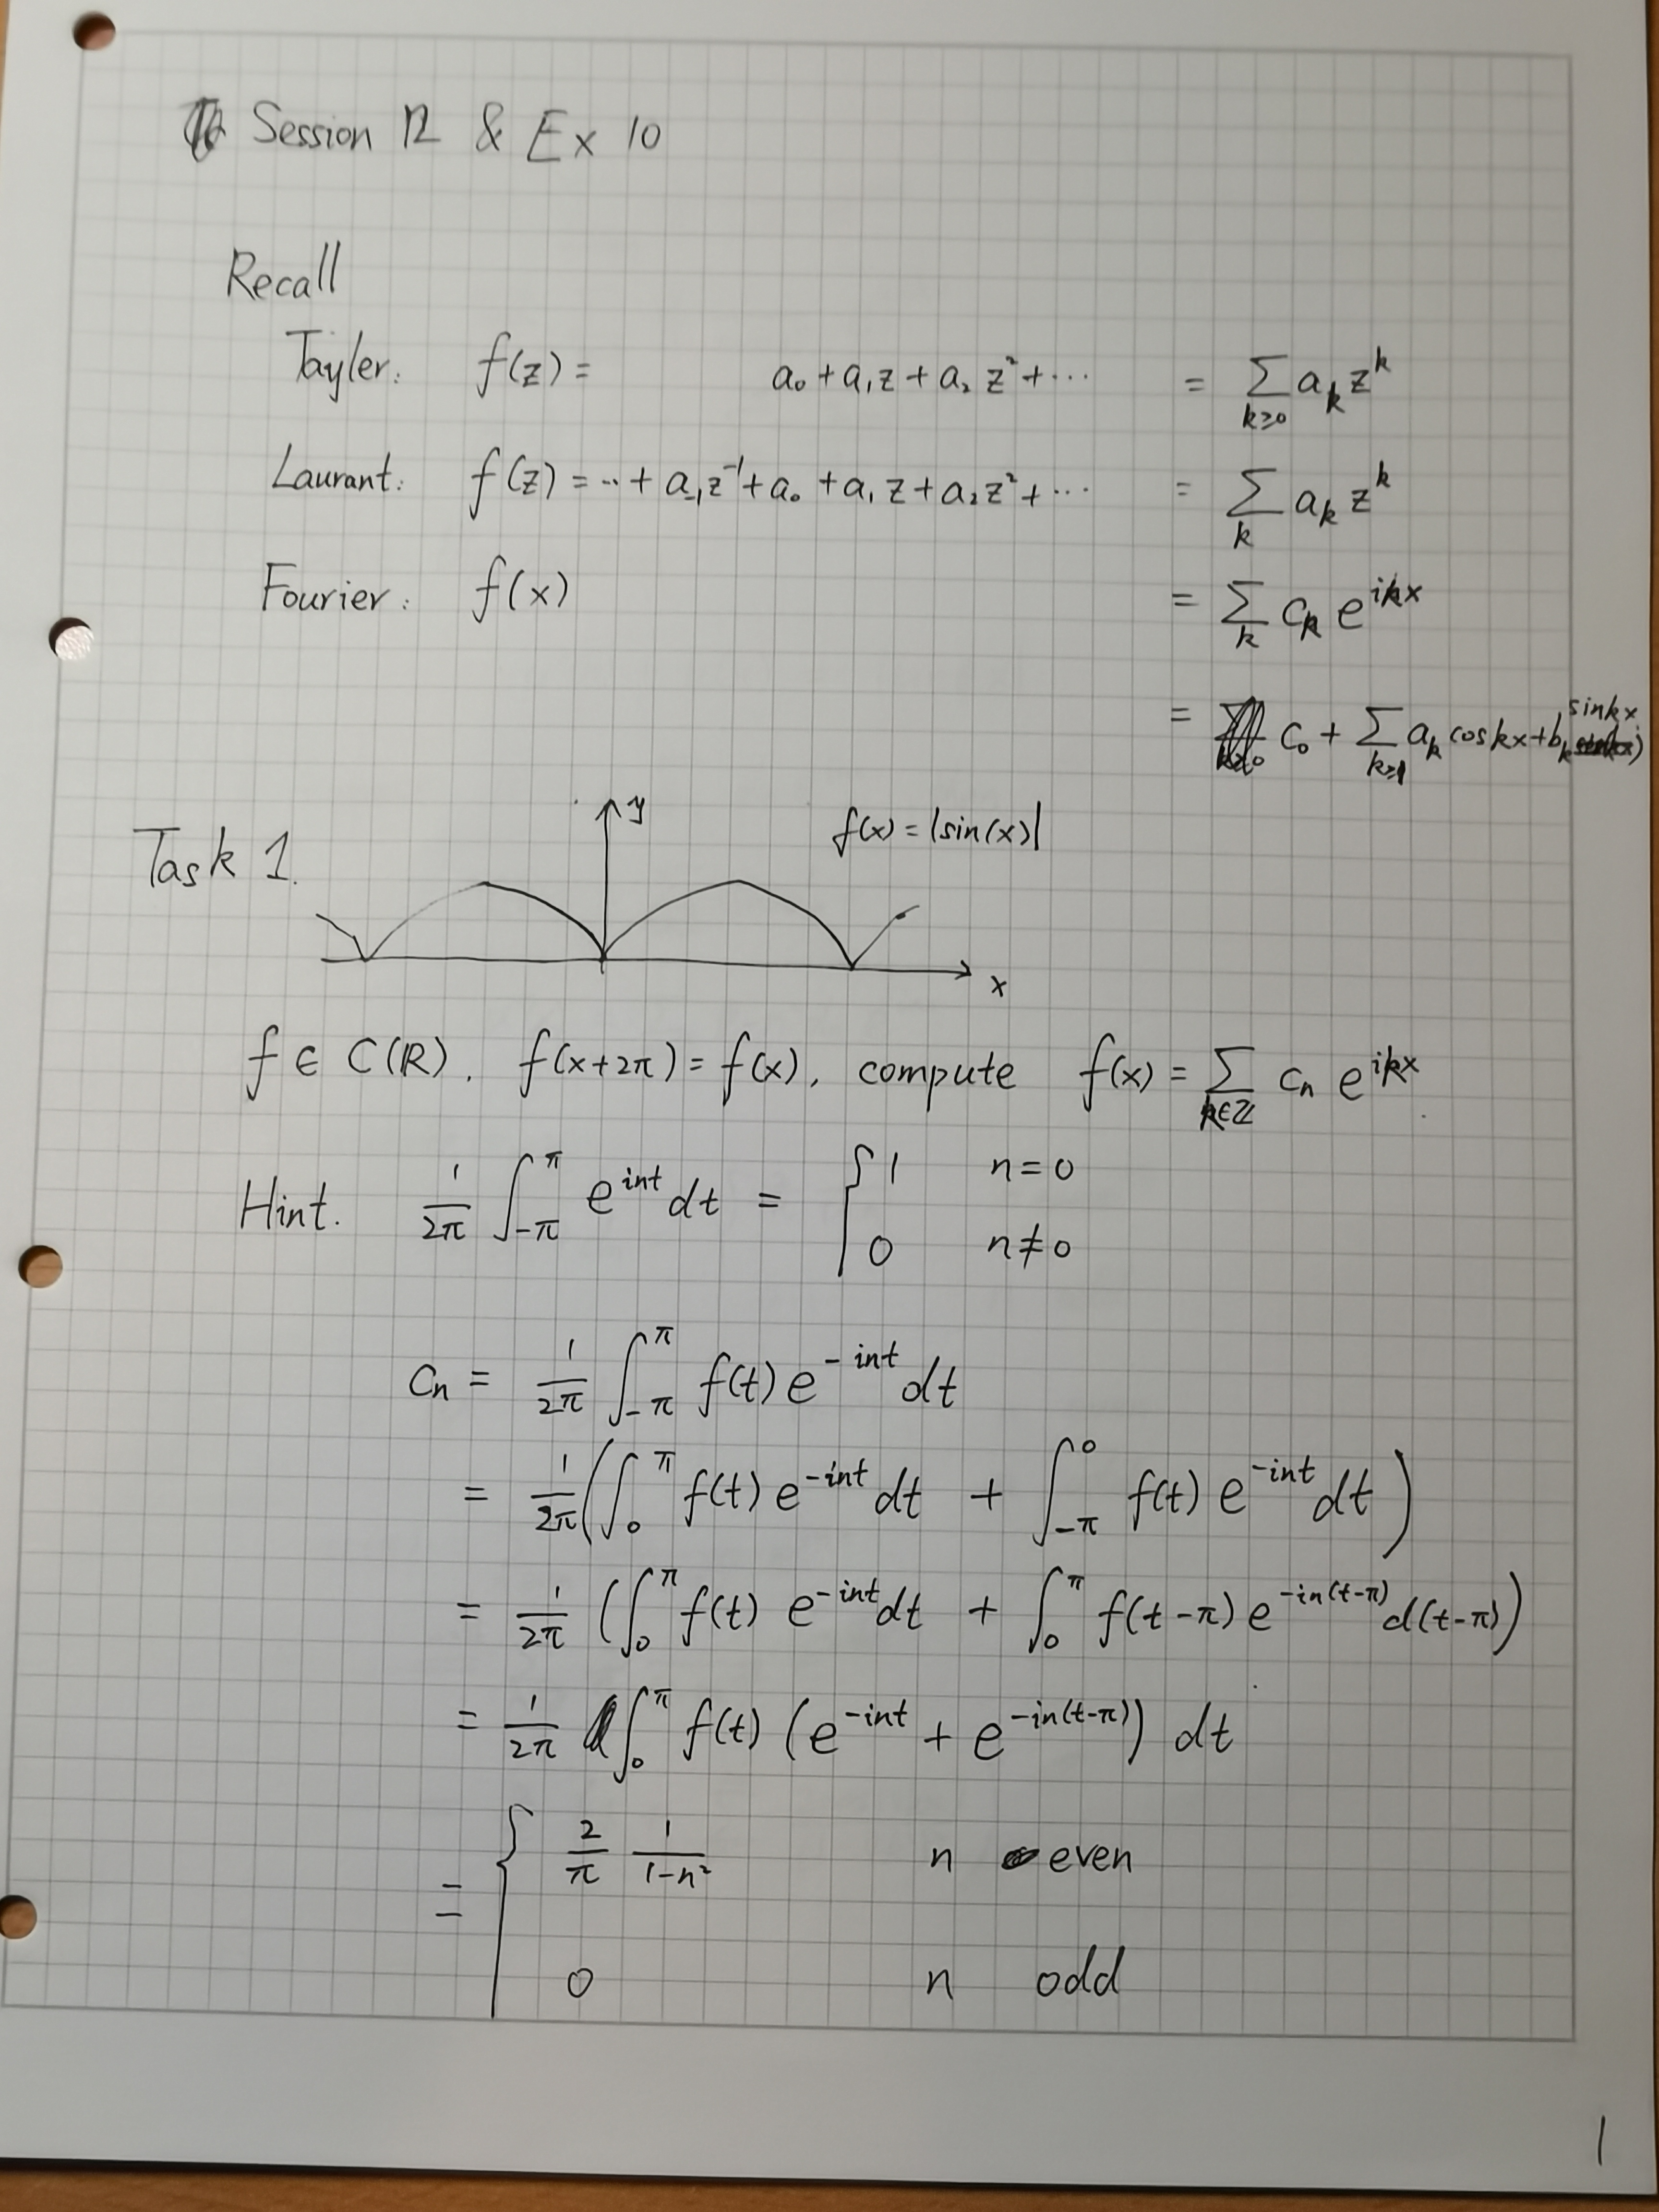 Session 12 & Ex 10
Recall
Tayler: f(z) = a₀ + a₁z + a₂z² + ⋯ = ∑_{k≥0} a_k z^k
Laurant: f(z) = ⋯ + a₋₁z⁻¹ + a₀ + a₁z + a₂z² + ⋯ = ∑_k a_k z^k
Fourier: f(x) = ∑_k c_k e^{ikx}
= c₀ + ∑_{k≥1} a_k cos kx + b_k sin kx)
y f(x) = |sin(x)|
Task 1.
x
f ∈ C(ℝ), f(x+2π) = f(x), compute f(x) = ∑_{k∈ℤ} c_n e^{ikx}.
Hint. 1/2π ∫_{-π}^{π} e^{int} dt = { 1 n=0
0 n≠0
c_n = 1/2π ∫_{-π}^{π} f(t) e^{-int} dt
= 1/2π (∫_0^π f(t) e^{-int} dt + ∫_{-π}^0 f(t) e^{-int} dt)
= 1/2π (∫_0^π f(t) e^{-int} dt + ∫_0^π f(t-π) e^{-in(t-π)} d(t-π))
= 1/2π ∫_0^π f(t) (e^{-int} + e^{-in(t-π)}) dt
= { 2/π 1/(1-n²) n even
0 n odd
1